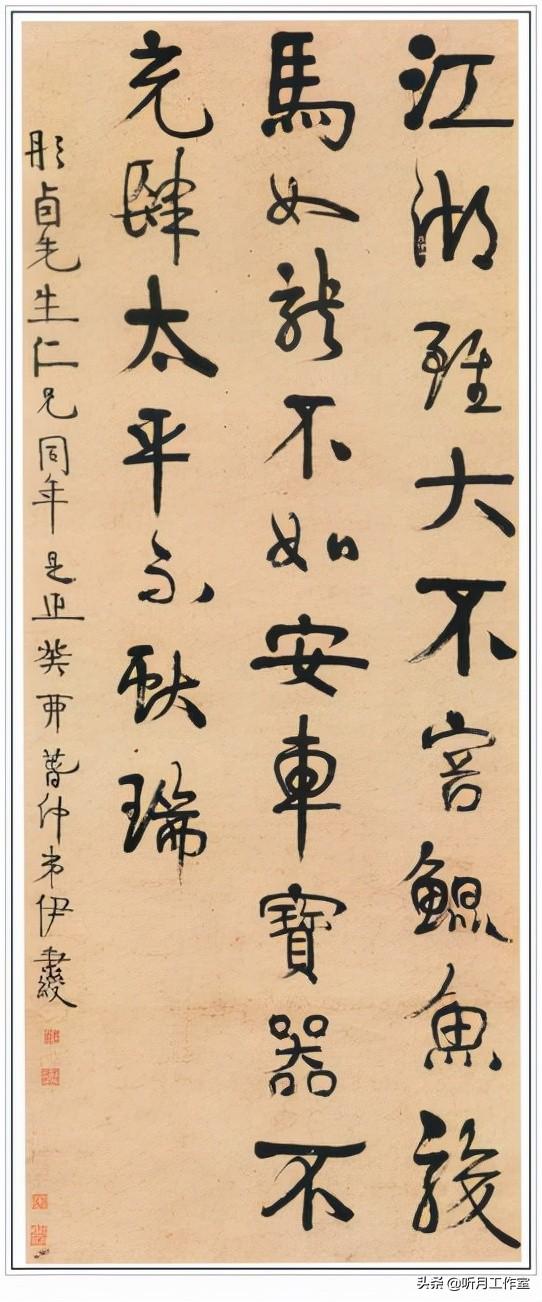 江湖雖大不容鯤魚駿
馬如龍不如安車寶器不
充肆太平獻瑞
彤卣先生仁兄同年是正癸酉春仲弟伊秉綬
头条 @听月工作室